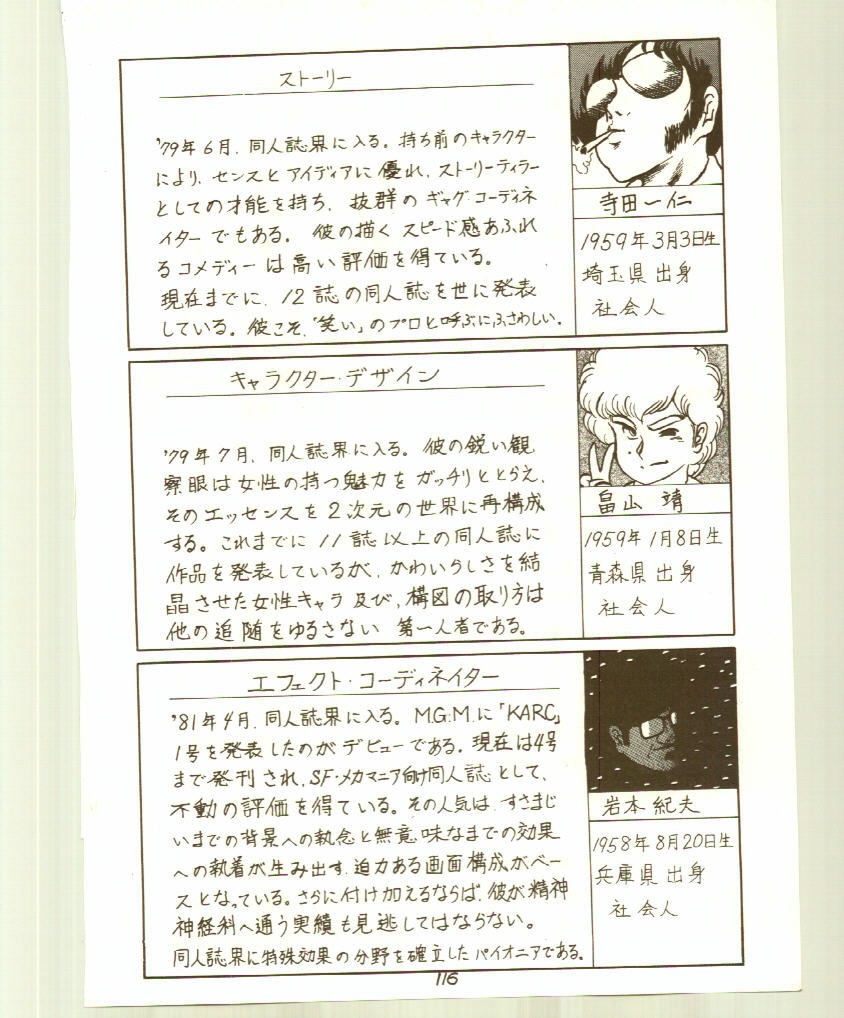 ストーリー
'79年6月、同人誌界に入る。持ち前のキャラクター
により、センスとアイディアに優れ、ストーリーティラー
としての才能を持ち、抜群のギャグ・コーディネ
イターでもある。彼の描くスピード感あふれ
るコメディーは高い評価を得ている。
現在までに、12誌の同人誌を世に発表
している。彼こそ、「笑い」のプロと呼ぶにふさわしい。
寺田一仁
1959年3月3日生
埼玉県出身
社会人
キャラクター・デザイン
'79年7月、同人誌界に入る。彼の鋭い観
察眼は女性の持つ魅力をガッチリととらえ、
そのエッセンスを2次元の世界に再構成
する。これまでに11誌以上の同人誌に
作品を発表しているが、かわいらしさを結
晶させた女性キャラ及び、構図の取り方は
他の追随をゆるさない第一人者である。
畠山靖
1959年1月8日生
青森県出身
社会人
エフェクト・コーディネイター
'81年4月、同人誌界に入る。M.G.M.に「KARC」
1号を発表したのがデビューである。現在は4号
まで発刊され、SF・メカマニア向け同人誌として、
不動の評価を得ている。その人気は、すさまじ
いまでの背景への執念と無意味なまでの効果
への執着が生み出す、迫力ある画面構成がベー
スとなっている。さらに付け加えるならば、彼が精神
神経科へ通う実績も見逃してはならない。
同人誌界に特殊効果の分野を確立したパイオニアである。
岩本紀夫
1958年8月20日生
兵庫県出身
社会人
116